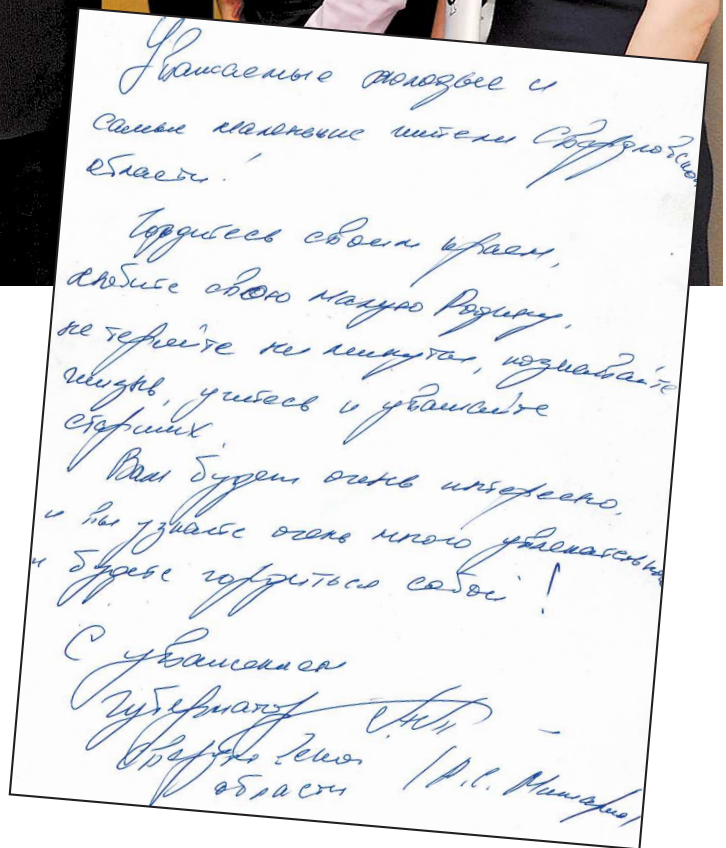 Уважаемые молодые и
самые маленькие жители Свердловской
области!
Гордитесь своим краем,
любите свою малую Родину,
не теряйте ни минуты, познавайте
жизнь, учитесь и уважайте
старших.
Вам будет очень интересно,
и вы узнаете очень много увлекательного
и будете гордиться собой!
С уважением
губернатор
Свердловской
области /А.С. Мишарин/